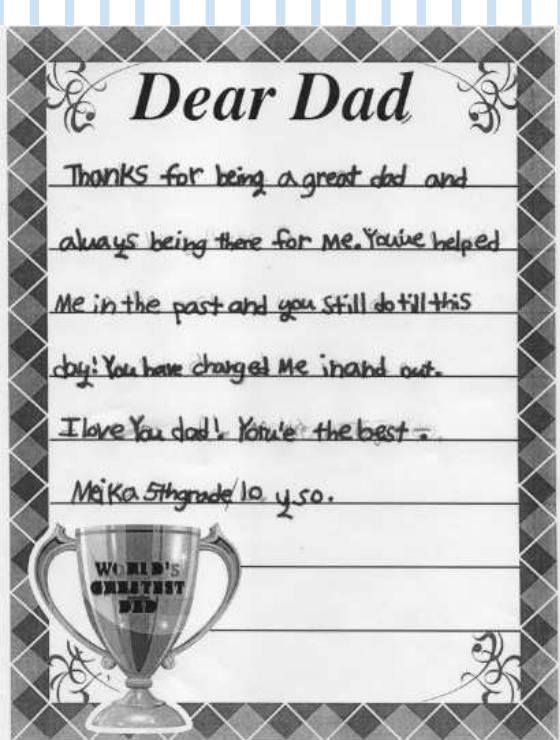 Dear Dad
Thanks for being a great dad and
always being there for me. You've helped
me in the past and you still do till this
day! You have changed me in and out.
I love You dad! Yoru'e the best -
Meika 5th grade/10 y so.
WORLD'S
GREATEST
DAD